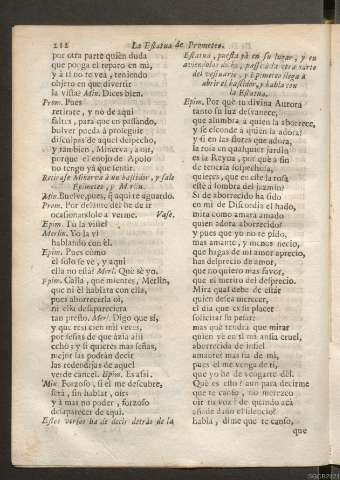 212 La Estatua de Prometeo.
por otra parte quien duda
que ponga el reparo en mi,
y à ti no te vea, teniendo
objeto en que divertir
la vista? Min. Dices bien.
Prom. Pues
retirate, y no de aqui
faltes, para que en passando,
bolver pueda à proseguir
disculpas de aquel despecho,
y tambien, Minerva, à oir,
porque el enojo de Apolo
no tengo yà que sentir.
Retirase Minerva à un bastidor, y sale
Epimeteo, y Merlin.
Min. Buelve, pues, q̃ aqui te aguardo.
Prom. Por delante he de ir
ocasionandole à verme. Vase.
Epim. Tu la viste?
Merlin. Yo la vi
hablando con èl.
Epim. Pues como
èl solo se vè, y aqui
ella no està? Merl. Què sè yo.
Epim. Calla, que mientes, Merlin,
que ni èl hablàra con ella,
pues aborrecerla oì,
ni ella desapareciera
tan presto. Merl. Digo que sì,
y que resi cien mil veces,
por señas de que àzia alli
echò; y si quieres mas señas,
mejor las podràn decir
las redendijas de aquel
verde cancel. Epim. Es assi.
Min. Forzoso, si èl me descubre,
serà, sin hablar, oir;
y à mas no poder, forzoso
desaparecer de aqui.
Estos versos ha de decir detràs de la
Estatua, puesta yà en su lugar, y en
aviendolos dicho, passe à la otra parte
del vestuario, y Epimeteo llega à
abrir el bastidor, y habla con
la Estatua.
Epim. Por què tu divina Aurora
tanto su luz desvanece,
que alumbra à quien la aborrece,
y se esconde à quien la adora?
y si en las flores que adora,
la rosa en qualquier jardin
es la Reyna, por què à fin
de tenerla sospechosa,
quieres, que en este la rosa
estè à sombra del jazmin?
Si de aborrecido ha sido
en mi de Discordia el hado,
mira como amarà amado
quien adora aborrecido?
y pues que yo no te pido,
mas amante, y menos necio,
que hagas de mi amor aprecio,
haz desprecio de amor,
que no quiero mas favor,
que el merito del desprecio.
Mira qual debe de estàr
quien desea merecer,
el dia que es su placer
solicitar su pesar:
mas què tendrà que mirar
quien vè en sì mi ansia cruel,
aborrecida de infiel
amante? mas fia de mi,
pues èl me venga de ti,
que yo he de vengarte dèl.
Què es esto? aun para decirme
que te canso, no merezco
oir tu voz? de quando acà
añade daño el silencio?
habla, dime que te canso,
que